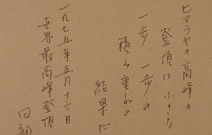 ヒマラヤの高峰の
登頂は小さな
一歩一歩の
積み重ねの
結果だ
一九七五年五月十六日
世界最高峰登頂
田部